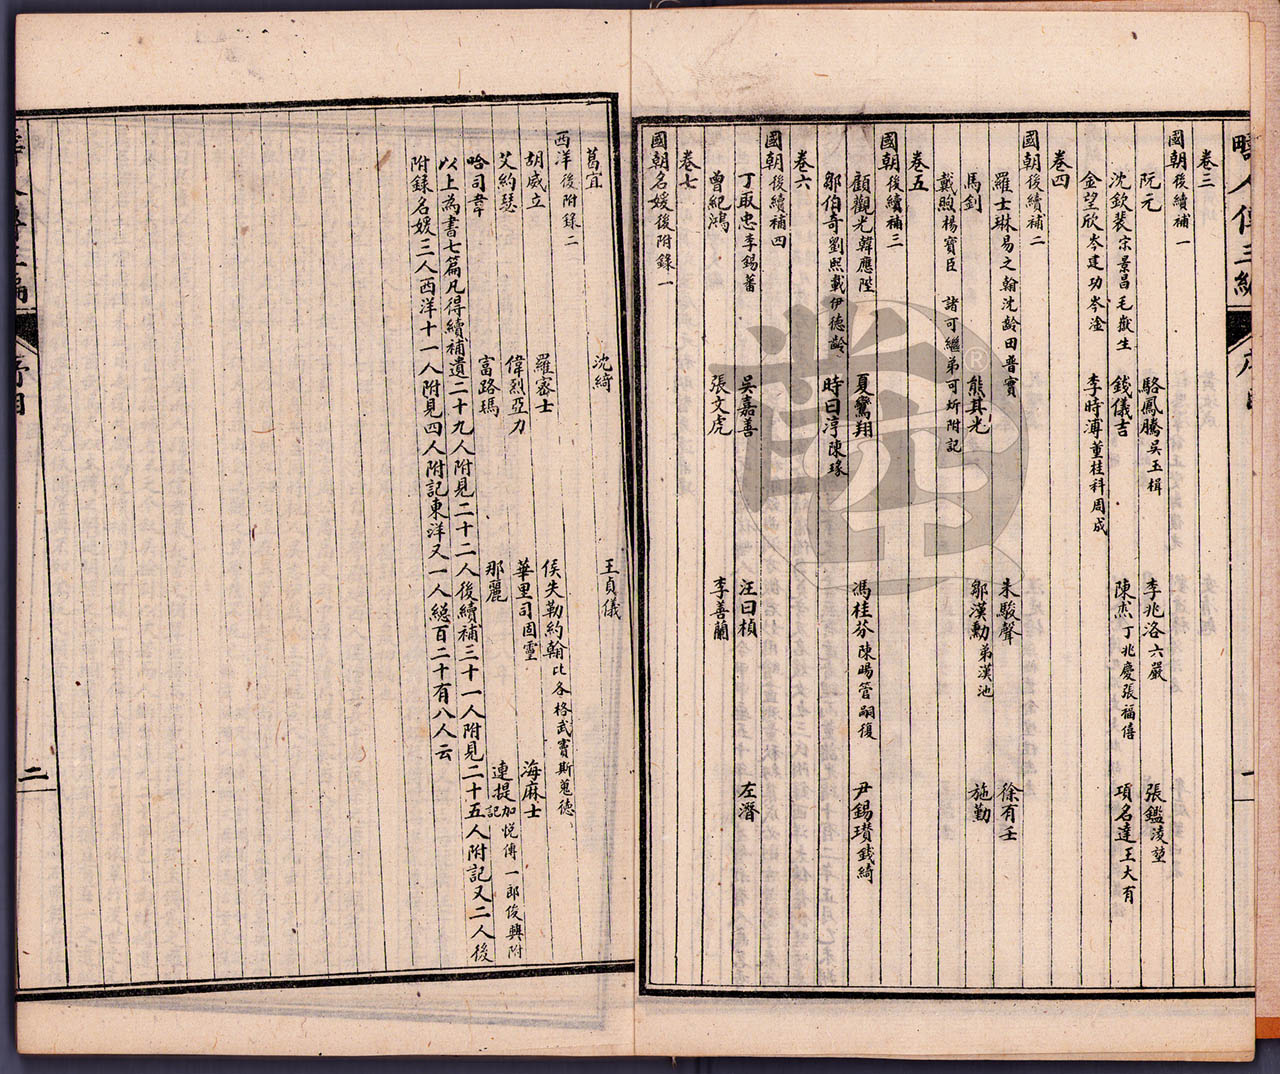 疇人傳三編
卷三
國朝後續補一
阮元 駱鳳騰吳玉楫 李兆洛六嚴 張鑑淩堃
沈欽裴宋景昌毛嶽生 錢儀吉 陳杰丁兆慶張福僖 項名達王大有
金望欣岑建功岑淦 李時溥董桂科周成
卷四
國朝後續補二
羅士琳易之翰沈齡田普實 朱駿聲 徐有壬
馬釗 熊其光 鄒漢勳弟漢池 施勤
戴煦楊寶臣 諸可繼弟可炘附記
卷五
國朝後續補三
顧觀光韓應陛 夏鸞翔 馮桂芬陳暘管嗣復 尹錫瓚錢綺
鄒伯奇劉熙載伊德齡 時曰淳陳瑑
卷六
國朝後續補四
丁取忠李錫蕃 吳嘉善 汪曰楨 左潛
曾紀鴻 張文虎 李善蘭
卷七
國朝名媛後附錄一
葛宜 沈綺 王貞儀
西洋後附錄二
胡威立 羅密士 侯失勒約翰比各格武竇斯蒐德 海麻士
艾約瑟 偉烈亞力 華里司固靈 連提加悅傳一郎俊興附記
哈司韋 富路瑪 那麗
以上為書七篇凡得續補遺二十九人附見二十二人後續補三十一人附見二十五人附記又二人後
附錄名媛三人西洋十一人附見四人附記東洋又一人總百二十有八人云
二